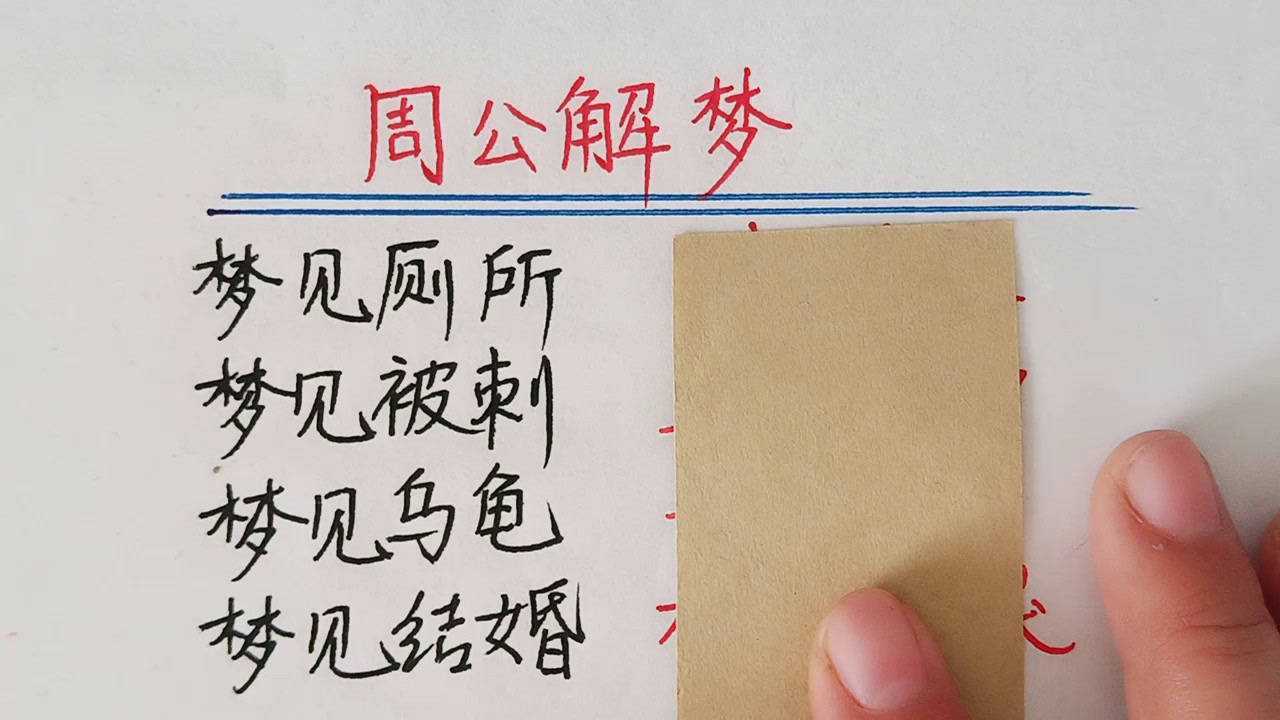 周公解梦
梦见厕所
梦见被刺
梦见乌龟
梦见结婚